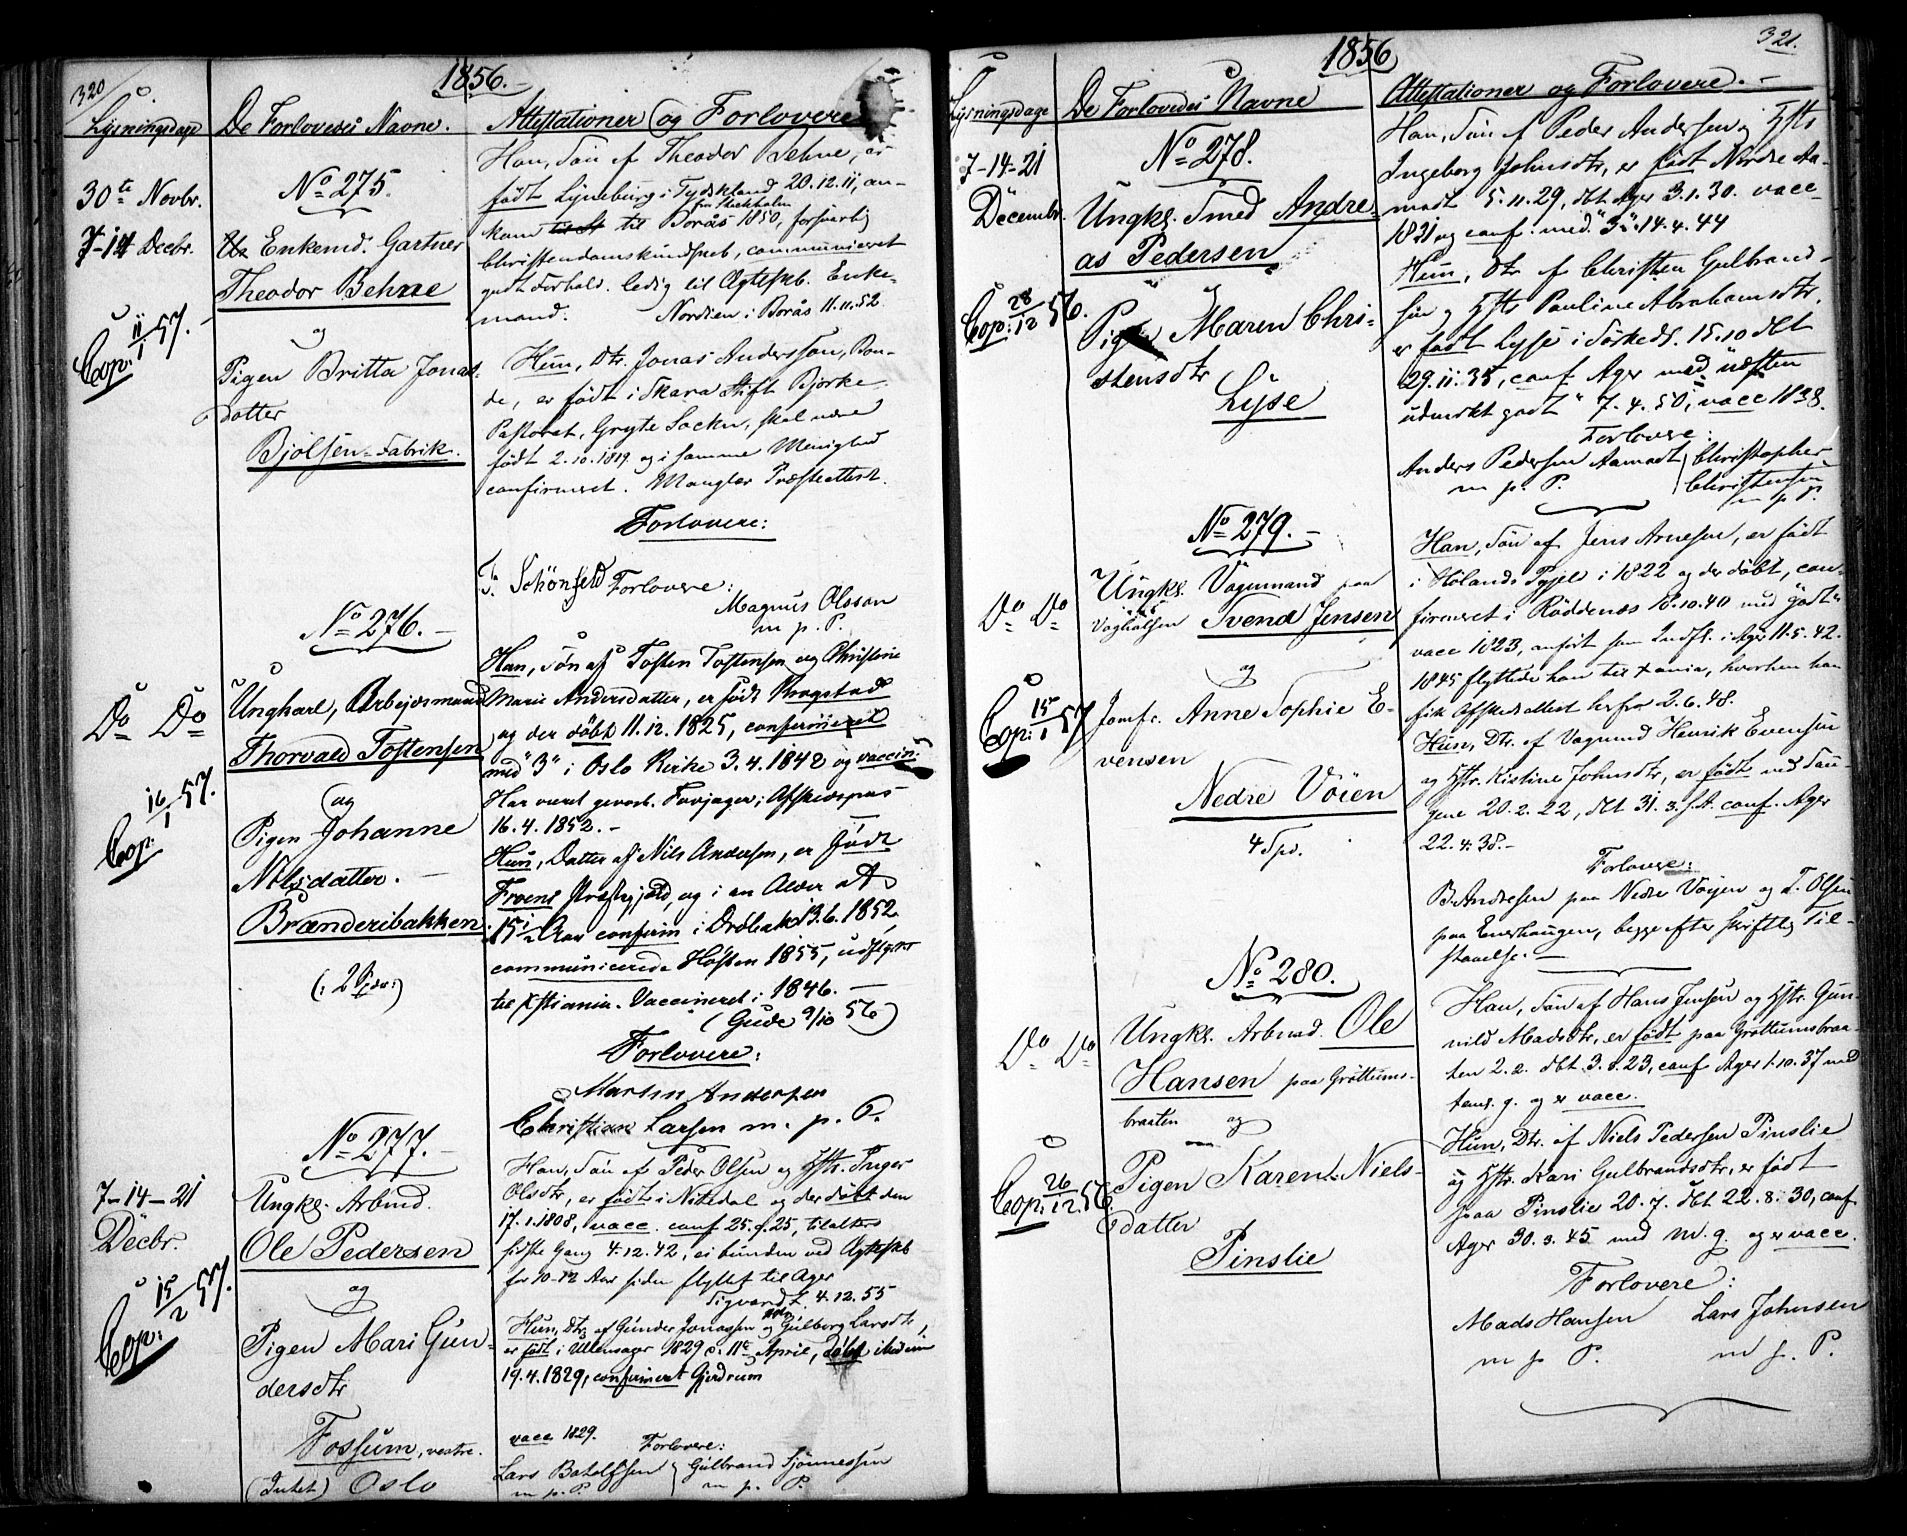 320
1856.
Lysningsdage
De Forlovedes Navne.
Attestationer og Forlovere
30te Novbr.
7-14 Decbr.
Cop: 11/1 57.
No 275.
Enkemd. Gartner
Theodor Behne
og
Pigen Britta Jonas-
datter
Bjølsen-Fabrik.
Han, Søn af Theodor Behne, er
født Lyneburg i Tydskland 20.12.11, an-
kom til Borås 1850, forsvarlig
fra Stockholm
Christendomskundskab, communiceret
godt Forhold. ledig til Ægteskb. Enke-
mand. Nordien i Borås 11.11.52
Hun, Dtr. Jonas Andersson, Bon-
de, er født i Skara Stift Bjorke
Pastorat, Gryte Sockn, skal være
født 2.10.1819 og i samme Menighed
confirmeret. Mangler Præsteattest.
Forlovere:
F. Schönfeld Forlovere:
Magnus Olsson
m. p. P.
No 276.
Do Do
Cop: 16/1 57.
Ungkarl, Arbejdsmand
Thorvald Tostensen
og
Pigen Johanne
Nilsdatter.
Brænderibakken
(: 2 Spd :)
Han, Søn af Tosten Tostensen og Christine
Marie Andersdatter, er født Kragstad
og der døbt 11.12.1825, confirmeret
med "3" i Oslo Kirke 3.4.1842 og vaccin:
Har været gevorb. Fodjæger; Afskedspas
16.4.1852.
Hun, Datter af Nils Andersen, er født
Froens Præstegjæld, og i en Alder af
15 1/2 Aar confirm i Drøbak 13.6.1852,
communicerede Høsten 1855, udflyttet
til Kstiania. Vaccineret i 1846.
(Gude 9/10 56)
Forlovere:
Martin Andersen
Christian Larsen m. p. P.
No 277.
7-14-21
Decbr.
Cop: 15/2 57.
Ungkl. Arbmd.
Ole Pedersen
og
Pigen Mari Gun-
dersdtr
Fossum, vestre.
(Intet) Oslo
Han, Søn af Peder Olsen og Hstr. Inger
Olsdtr, er født i Nitedal og der døbt den
17.1.1808, vacc. conf 25.9.25, tilalters
sidste Gang 4.12.42, ei bunden ved Ægteskb
for 10-12 Aar siden flyttet til Ager
Sigvand 4.12.55
Hun, Dtr af Gunder Jonassen og Gulborg Larsdtr,
er født i Ullensager 1829 d. 11te April, døbt
19.4.1829, confirmeret Gjerdrum
vacc 1829.
Forlovere:
Lars Botolfsen
m. p. P.
Gulbrand Sjonnessen
m. p. P.
321.
1856
Lysningsdage
De Forlovedes Navne
Attestationer og Forlovere.
7-14-21
Decembr.
Cop: 28/12 56.
No 278.
Ungkl. Smed Andre-
as Pedersen
og
Pigen Maren Chri-
stensdtr
Lyse
Han, Søn af Peder Andersen og Hstr
Ingeborg Johnsdtr, er født Nordre Aa-
modt 5.11.29, dbt Ager 3.1.30. vacc
1831 og conf. med "3" 14.4.44
Hun, Dtr af Christen Gulbrand-
sen og Hstr Pauline Abrahamsdtr,
er født Lyse i Sørkedl. 15.10 dbt
29.11.35, conf Ager med "næsten
udmrkt godt" 7.4.50, vacc 1838.
Forlovere:
Anders Pedersen Aamodt
m. p. P.
Christopher
Christensen
m p P
No 279.
Do Do
Cop: 15/1 57
Ungkl. Vognmand paa
Vaghalsen Svend Jensen
og
Jomfr. Anne Sophie E-
vensen
Nedre Vøien
4 Spd.
Han, Søn af Jens Arnesen, er født
i Hølands Pgjeld i 1822 og der døbt, con-
firmeret i Røddenæs 18.10.40 med "godt"
vacc 1823, anført som Indfl. i Ager 11.5.42.
1845 flyttede han til Xania, hvorhen han
fik Afskedsattest herfra 2.6.48.
Hun, Dtr. af Vognmd Henrik Evensen
og Hstr. Kistine Johnsdtr, er født ved Sau-
gene 20.2.22, dbt 31.3. s.A. conf. Ager
22.4.38.
Forlovere:
B. Andresen paa Nedre Vøyen og T. Olsen
paa Enerhaugen, begge efter skriftlig Til-
staaelse.
No 280.
Do Do
Cop: 26/12 56
Ungkl. Arbmd. Ole
Hansen paa Grøttums-
braaten og
Pigen Karen Niels-
datter
Pinslie
Han, Søn af Hans Jensen og Hstr. Gun-
nild Madsdtr, er født paa Grøttumsbraa-
ten 2.2. dbt 3.3.23, conf Ager 1.10.37 med
tems. g. og er vacc.
Hun, Dtr. af Niels Pedersen Pinslie
og Hstr. Kari Gulbrandsdtr, er født
paa Pinslie 20.7. dbt 22.8.30, conf
Ager 30.3.45 med M. g. og er vacc.
Forlovere:
Mads Hansen Lars Johnsen
m p P. m p. P.